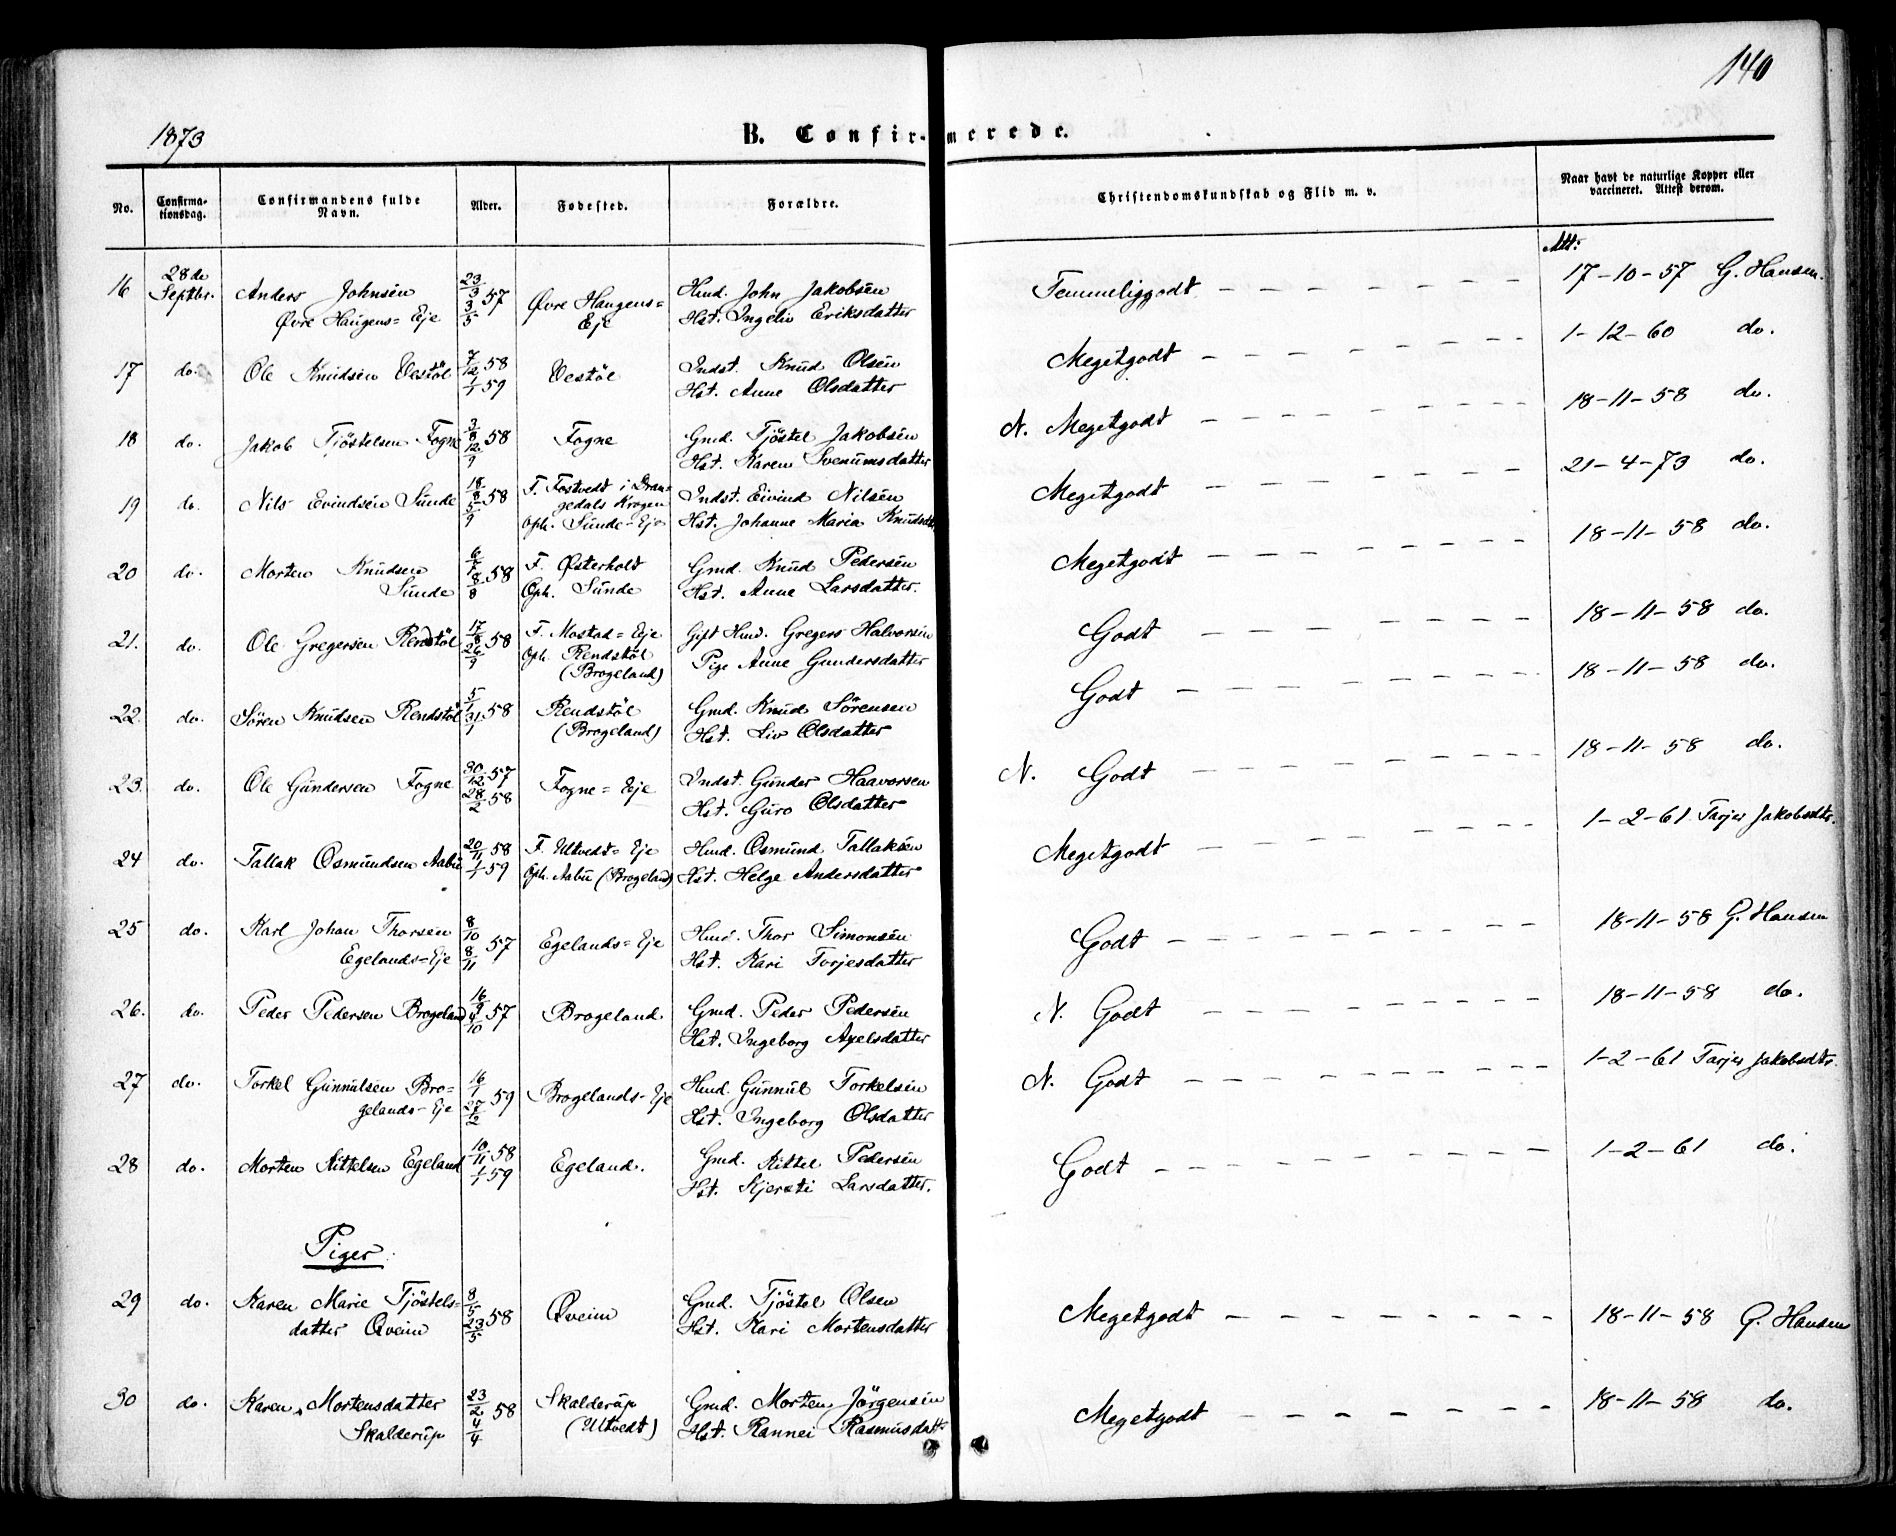 140
1873
B. Confirmerede.
No.
Confirma-
tionsdag.
Confirmandens fulde
Navn.
Alder.
Fødested.
Forældre.
Christendomskundskab og Flid m. v.
Naar havt de naturlige Kopper eller
vaccineret. Attest derom.
Att:
16 28de Septbr. Anders Johnsen 23/3 57 Øvre Haugens= Hmd. John Jakobsen Temmeliggodt 17-10-57 G. Hansen.
Øvre Haugens= Eje 3/5 Eje Hst. Ingeliv Eriksdatter
17 do. Ole Knudsen Vestöl 7/12 58 Vestöl Indst. Knud Olsen Megetgodt 1-12-60 do.
1/1 59 Hst. Anne Olsdatter
18 do. Jakob Tjöstelsen Fogne 3/8 58 Fogne Gmd. Tjöstel Jakobsen N. Megetgodt 18-11-58 do.
12/9 Hst. Karen Svenumsdatter
19 do. Nils Evindsen Sunde 18/8 58 F. Fostvedt i Dran- Indst. Eivind Nilsen Megetgodt 21-4-73 do.
5/9 gedals Krogen
Oph. Sunde-Eje Hst. Johanne Maria Knudsdtr
20 do. Morten Knudsen 6/7 58 F. Østerholt Gmd. Knud Pedersen Megetgodt 18-11-58 do.
Sunde 8/8 Oph. Sunde Hst. Anne Larsdatter.
21. do. Ole Gregersen Rendstöl 17/8 58 F. Mostad= Eje Gift Hmd. Gregers Halvorsen Godt 18-11-58 do.
26/9 Oph. Rendstöl Pige Anne Gundersdatter
(Brogeland)
22. do. Sören Knudsen Rendstöl 5/1 58 Rendstöl Gmd. Knud Sörensen Godt 18-11-58 do.
31/1 (Brogeland) Hst. Liv Olsdatter
23. do. Ole Gundersen Fogne 30/12 57 Fogne= Eje Indst. Gunder Haavorsen N. Godt 18-11-58 do.
28/2 58 Hst. Guro Olsdatter
24 do. Tallak Osmundsen Aabu 20/11 58 F. Ultvedt= Eje Hmd. Osmund Tallaksen Megetgodt 1-2-61 Tarjer Jakobsdtr.
1/1 59 Oph. Aabu (Brogeland) Hst. Helge Andersdatter
25 do. Karl Johan Thorsen 8/10 57 Egelands= Eje Hmd. Thor Simonsen Godt 18-11-58 G. Hansen
Egelands-Eje 8/11 Hst. Kari Torjesdatter
26. do. Peder Pedersen Brogeland 16/9 57 Brogeland Gmd. Peder Pedersen N. Godt 18-11-58 do.
4/10 Hst. Ingeborg Axelsdatter
27 do. Torkel Gunnulsen Bro= 16/1 59 Brogelands-Eje Hmd. Gunnul Torkelsen N. Godt 1-2-61 Tarjer Jakobsdtr.
gelands-Eje 27/2 Hst. Ingeborg Olsdatter
28 do. Morten Kittelsen Egeland 10/11 58 Egeland. Gmd. Kittel Pedersen Godt 1-2-61 do.
1/1 59 Hst. Kjersti Larsdatter.
Piger.
29 do. Karen Marie Tjöstels= 8/5 58 Qveim Gmd. Tjöstel Olsen Megetgodt 18-11-58 G. Hansen
datter Qveim 23/5 Hst. Kari Mortensdatter
30 do. Karen Mortensdatter 23/2 58 Skalderup Gmd. Morten Jörgensen Megetgodt 18-11-58 do.
Skalderup 4/4 (Ultvedt) Hst. Rannei Rasmusdatt